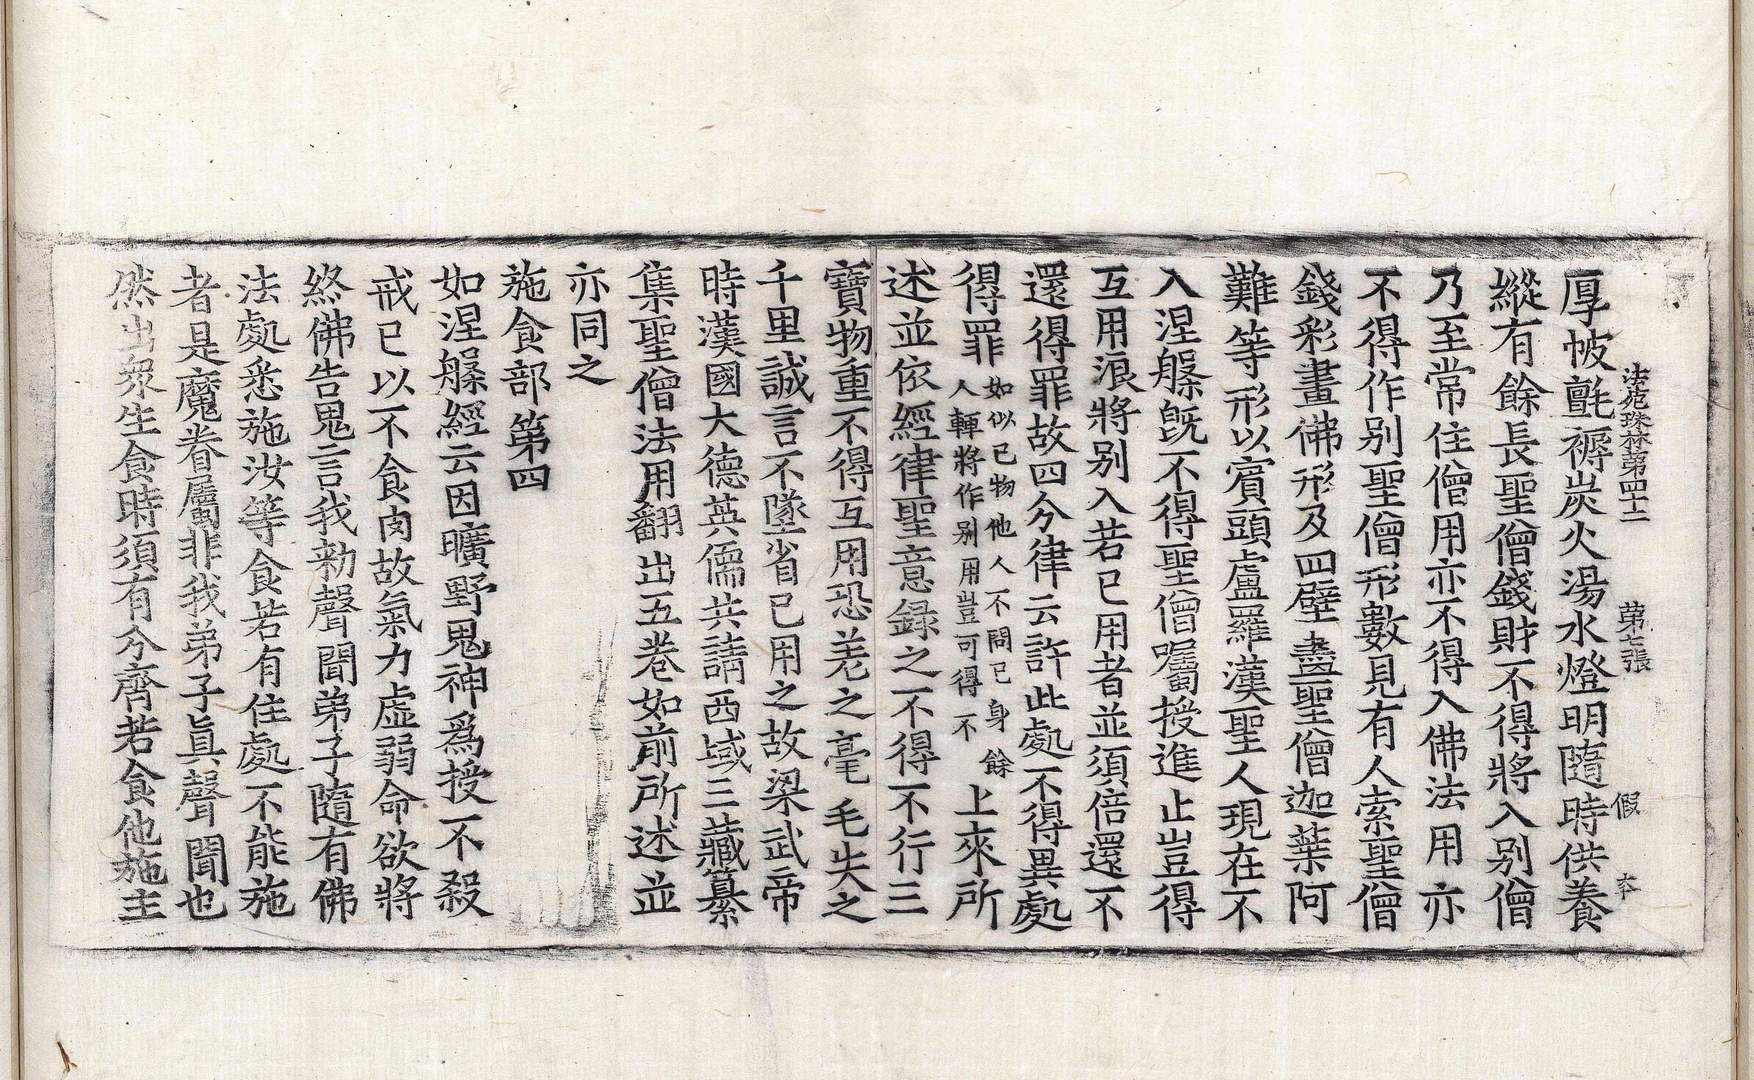 法苑珠林第四十二 第七張 假
厚帔氈褥炭火湯水燈明隨時供養
縱有餘長聖僧錢財不得將入別僧
乃至常住僧用亦不得入佛法用亦
不得作別聖僧形數見有人索聖僧
錢彩畫佛形及四壁畫聖僧迦葉阿
難等形以賓頭盧羅漢聖人現在不
入涅槃旣不得聖僧囑授進止豈得
互用浪將別入若已用者並須倍還不
還得罪故四分律云許此處不得異處
得罪如似己物他人不問己身餘人輙將作別用豈可得不上來所
述並依經律聖意録之不得不行三
寶物重不得互用恐羌之毫毛失之
千里誠言不墜省已用之故梁武帝
時漢國大德英儒共請西域三藏纂
集聖僧法用翻出五卷如前所述並
亦同之
施食部第四
如涅槃經云因曠野鬼神爲授不殺
戒已以不食肉故氣力虛弱命欲將
終佛告鬼言我勑聲聞弟子隨有佛
法處悉施汝等食若有住處不能施
者是魔眷屬非我弟子眞聲聞也
然出衆生食時須有分齊若食他施主